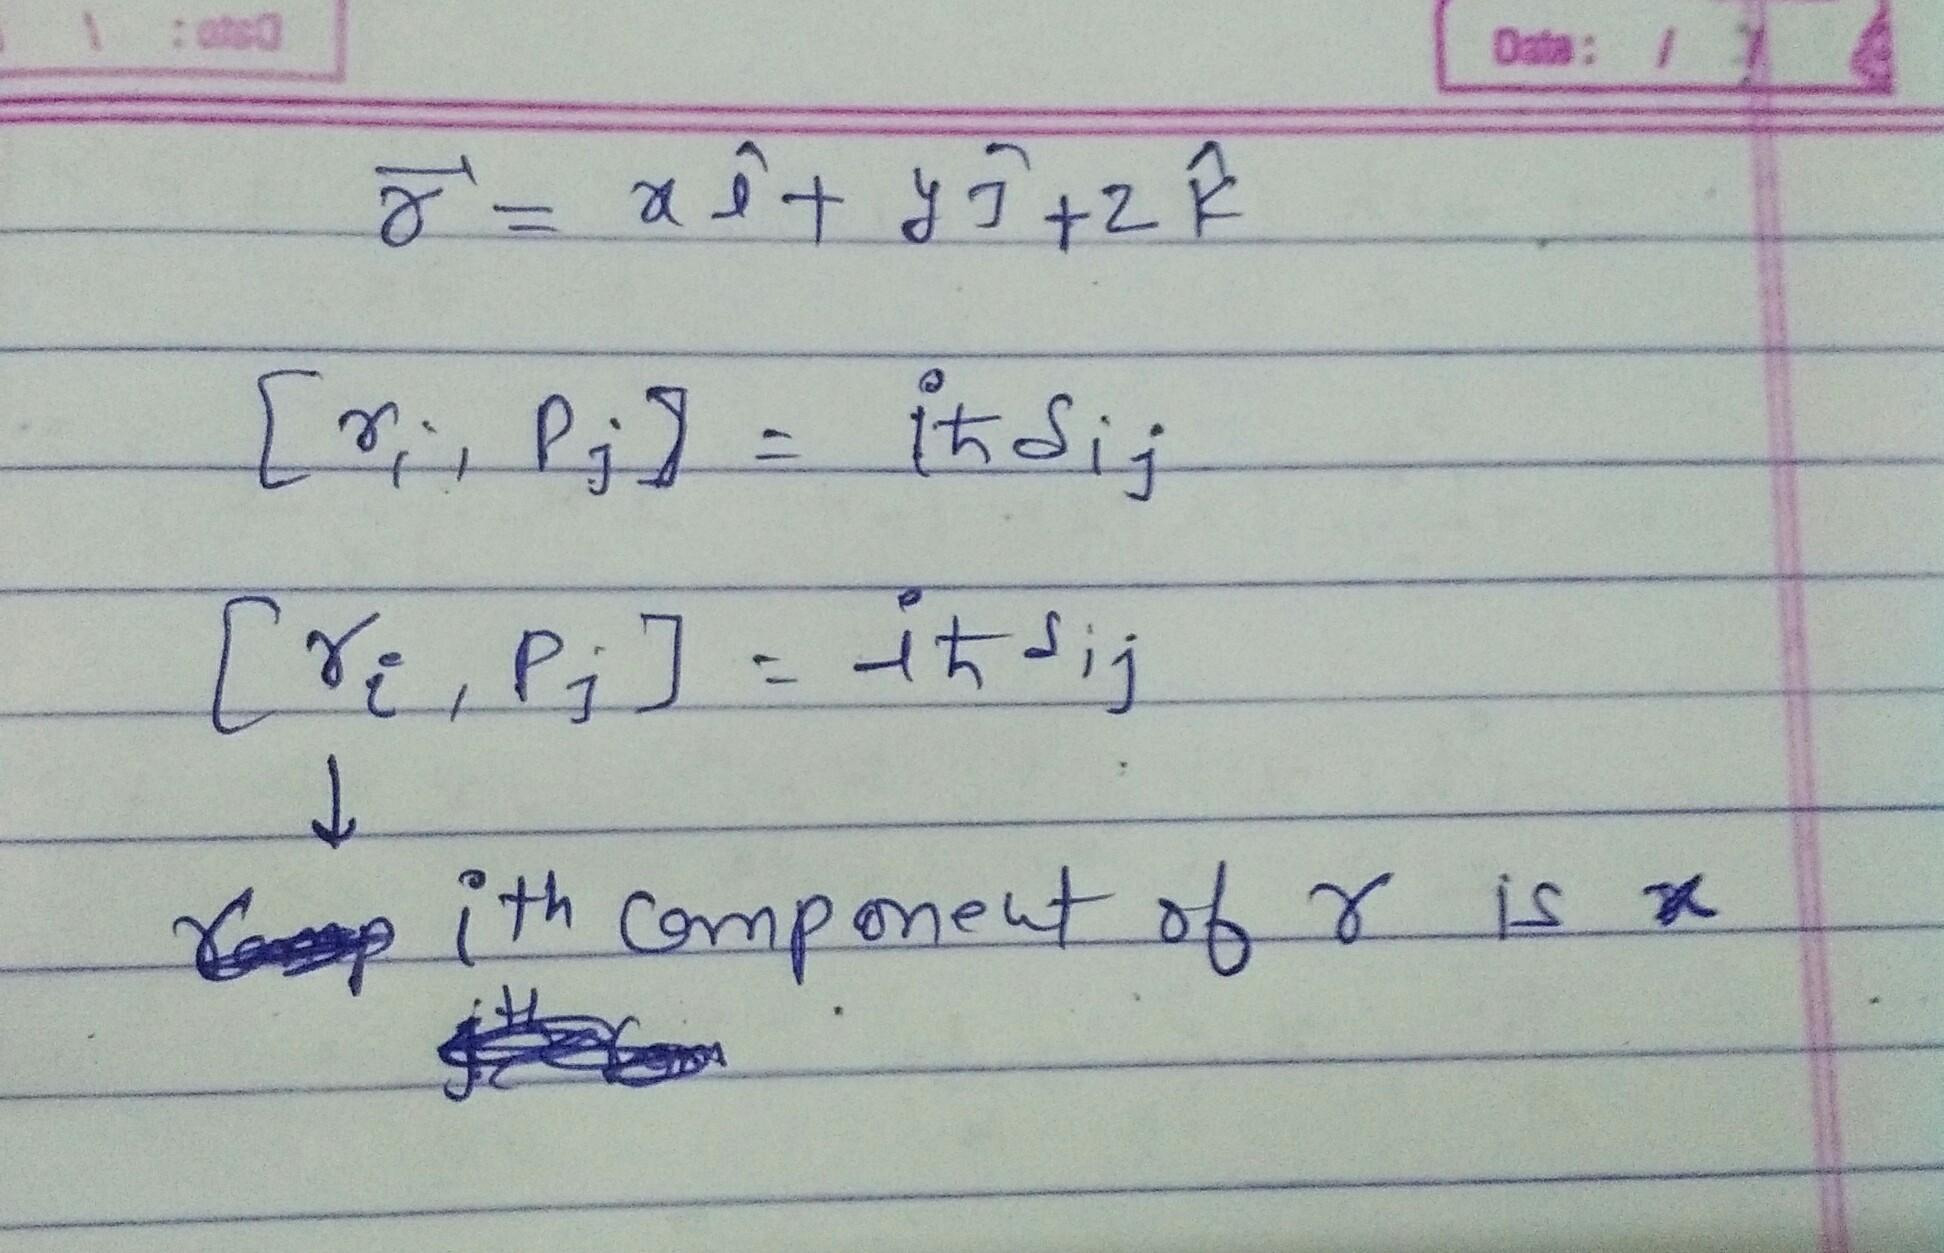 Date: / /
r⃗ = x î + y ĵ + z k̂
[rᵢ, Pⱼ] = iħ δᵢⱼ
[rᵢ, Pⱼ] = iħ δᵢⱼ
↓
ith component of r is x